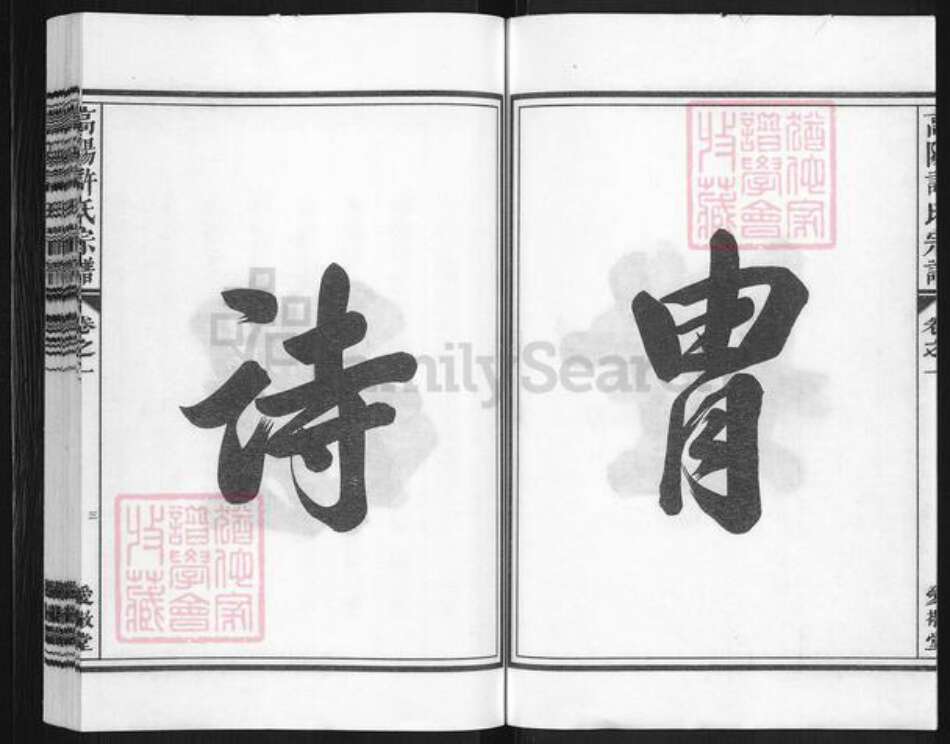 高陽許氏宗譜 卷之一
愛敬堂
冑
詩
高陽許氏宗譜 卷之一
愛敬堂
猶他家
譜學會
收藏
猶他家
譜學會
收藏
FamilySearch